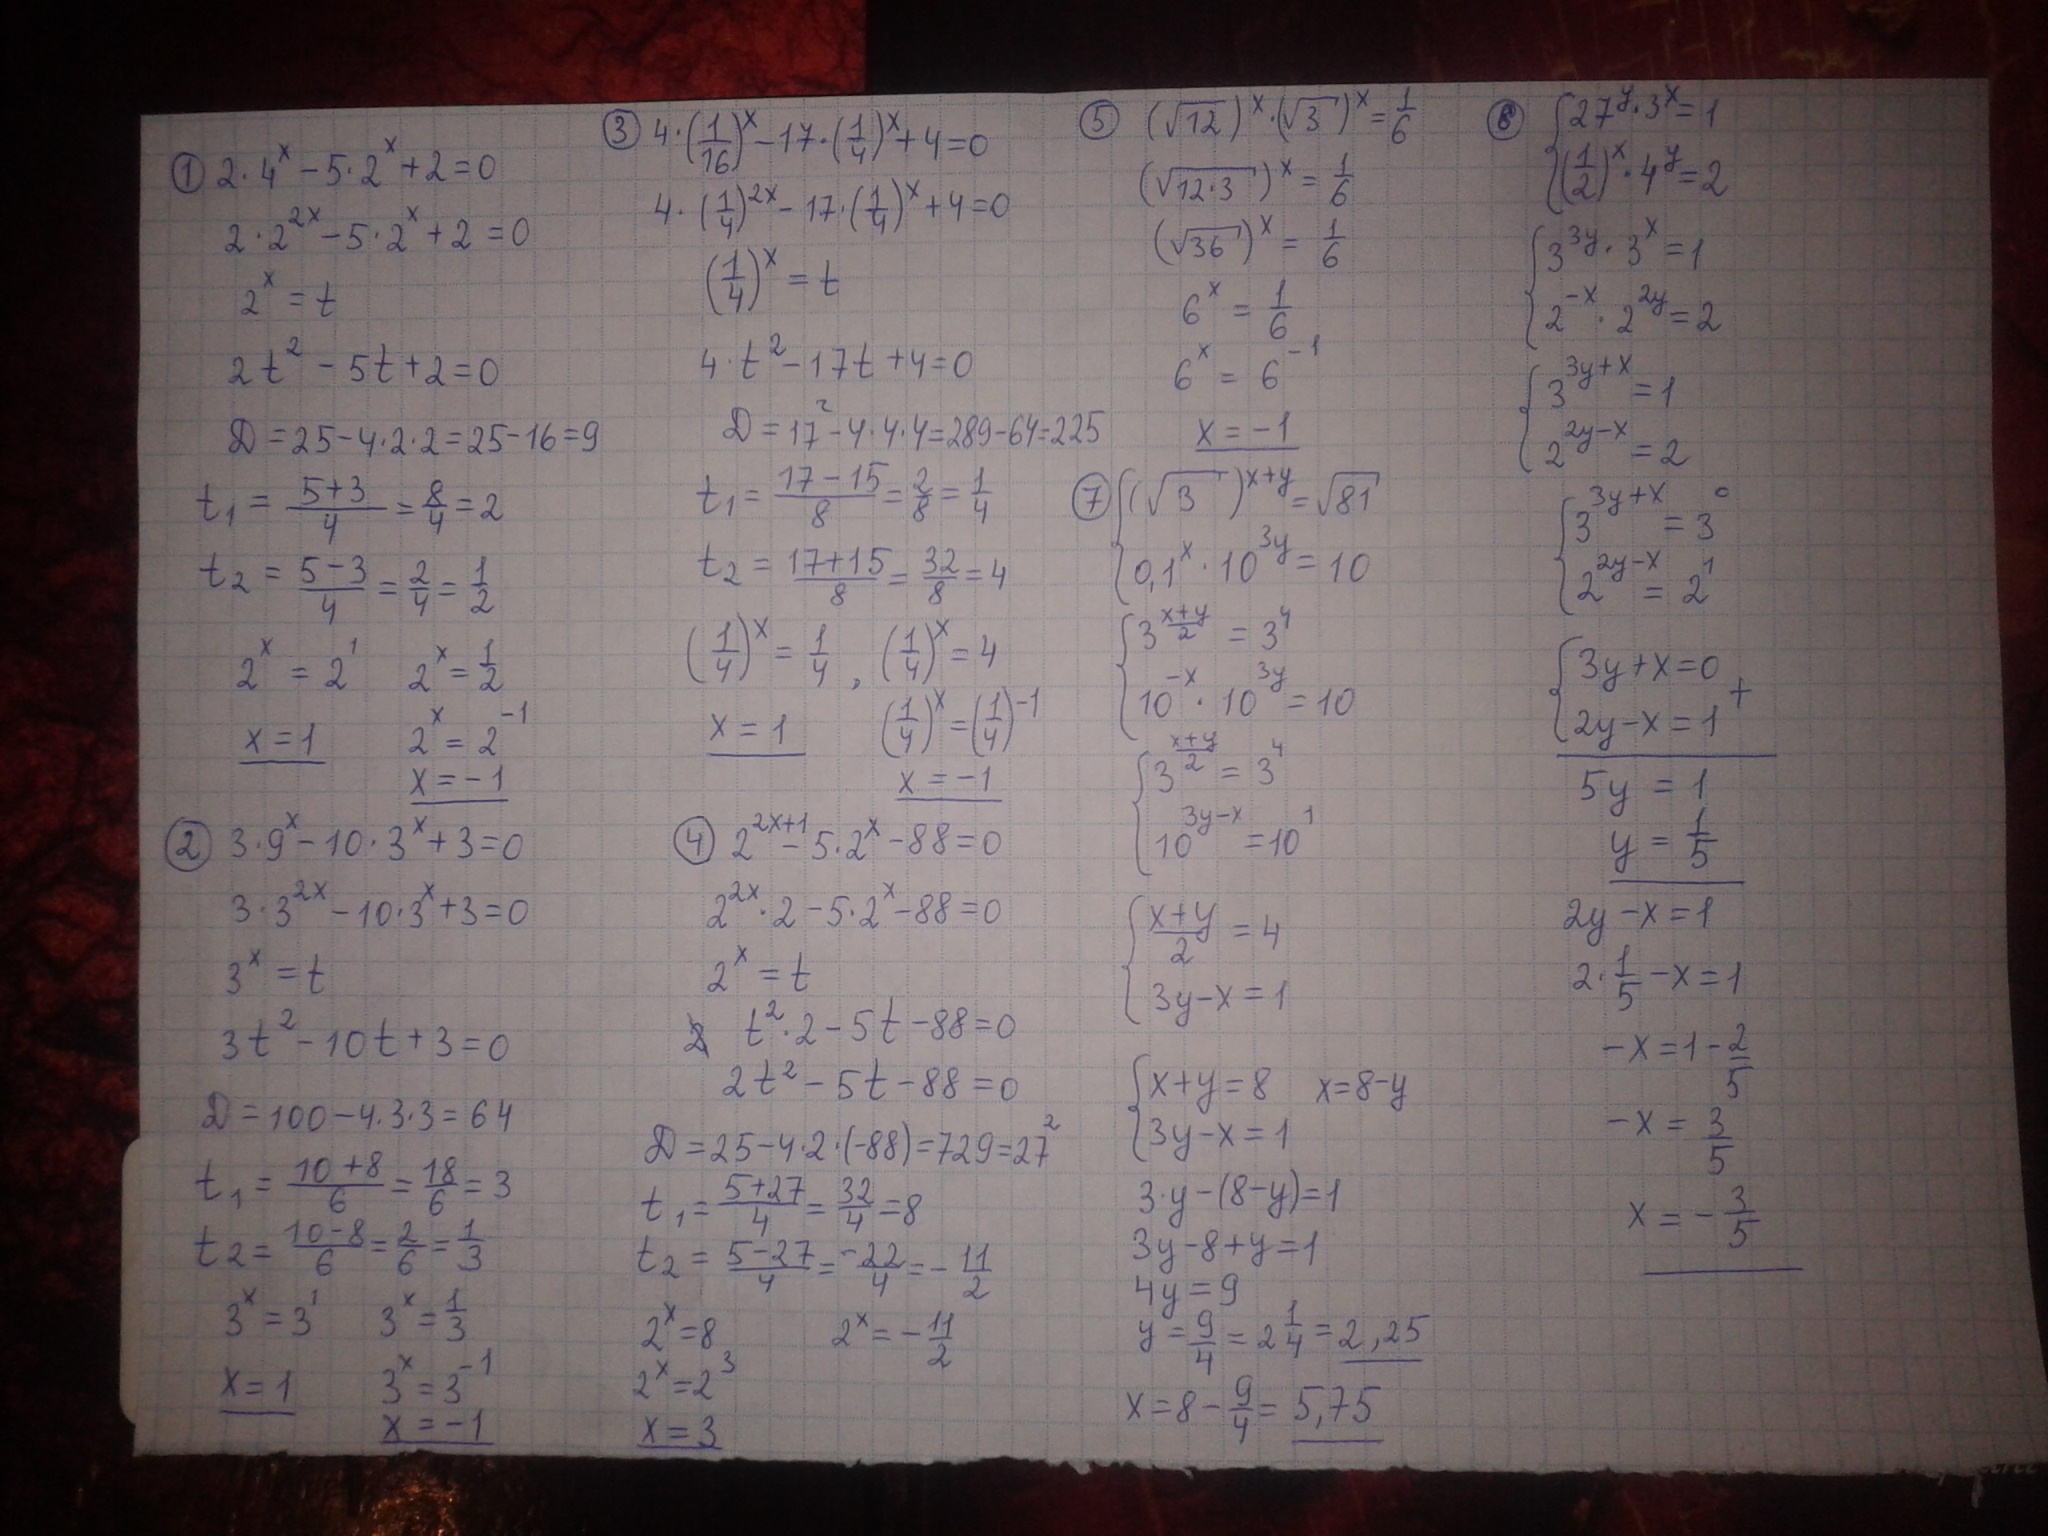 ① 2·4^x − 5·2^x + 2 = 0
2·2^{2x} − 5·2^x + 2 = 0
2^x = t
2t² − 5t + 2 = 0
D = 25 − 4·2·2 = 25 − 16 = 9
t₁ = (5+3)/4 = 8/4 = 2
t₂ = (5−3)/4 = 2/4 = 1/2
2^x = 2^1    2^x = 1/2
x = 1    2^x = 2^{−1}
x = −1
② 3·9^x − 10·3^x + 3 = 0
3·3^{2x} − 10·3^x + 3 = 0
3^x = t
3t² − 10t + 3 = 0
D = 100 − 4·3·3 = 64
t₁ = (10+8)/6 = 18/6 = 3
t₂ = (10−8)/6 = 2/6 = 1/3
3^x = 3^1    3^x = 1/3
x = 1    3^x = 3^{−1}
x = −1
③ 4·(1/16)^x − 17·(1/4)^x + 4 = 0
4·(1/4)^{2x} − 17·(1/4)^x + 4 = 0
(1/4)^x = t
4·t² − 17t + 4 = 0
D = 17² − 4·4·4 = 289 − 64 = 225
t₁ = (17−15)/8 = 2/8 = 1/4
t₂ = (17+15)/8 = 32/8 = 4
(1/4)^x = 1/4 , (1/4)^x = 4
x = 1    (1/4)^x = (1/4)^{−1}
x = −1
④ 2^{2x+1} − 5·2^x − 88 = 0
2^{2x}·2 − 5·2^x − 88 = 0
2^x = t
t²·2 − 5t − 88 = 0
2t² − 5t − 88 = 0
D = 25 − 4·2·(−88) = 729 = 27²
t₁ = (5+27)/4 = 32/4 = 8
t₂ = (5−27)/4 = −22/4 = −11/2
2^x = 8    2^x = −11/2
2^x = 2^3
x = 3
⑤ (√12)^x·(√3)^x = 1/6
(√12·3)^x = 1/6
(√36)^x = 1/6
6^x = 1/6
6^x = 6^{−1}
x = −1
⑦ { (√3)^{x+y} = √81
0,1^x · 10^{3y} = 10
{ 3^{(x+y)/2} = 3^4
10^{−x} · 10^{3y} = 10
{ 3^{(x+y)/2} = 3^4
10^{3y−x} = 10^1
{ (x+y)/2 = 4
3y − x = 1
{ x + y = 8    x = 8 − y
3y − x = 1
3·y − (8 − y) = 1
3y − 8 + y = 1
4y = 9
y = 9/4 = 2 1/4 = 2,25
x = 8 − 9/4 = 5,75
⑥ { 27^y·3^x = 1
(1/2)^x · 4^y = 2
{ 3^{3y} · 3^x = 1
2^{−x} · 2^{2y} = 2
{ 3^{3y+x} = 1
2^{2y−x} = 2
{ 3^{3y+x} = 3^0
2^{2y−x} = 2^1
{ 3y + x = 0
2y − x = 1 +
5y = 1
y = 1/5
2y − x = 1
2·1/5 − x = 1
−x = 1 − 2/5
−x = 3/5
x = −3/5